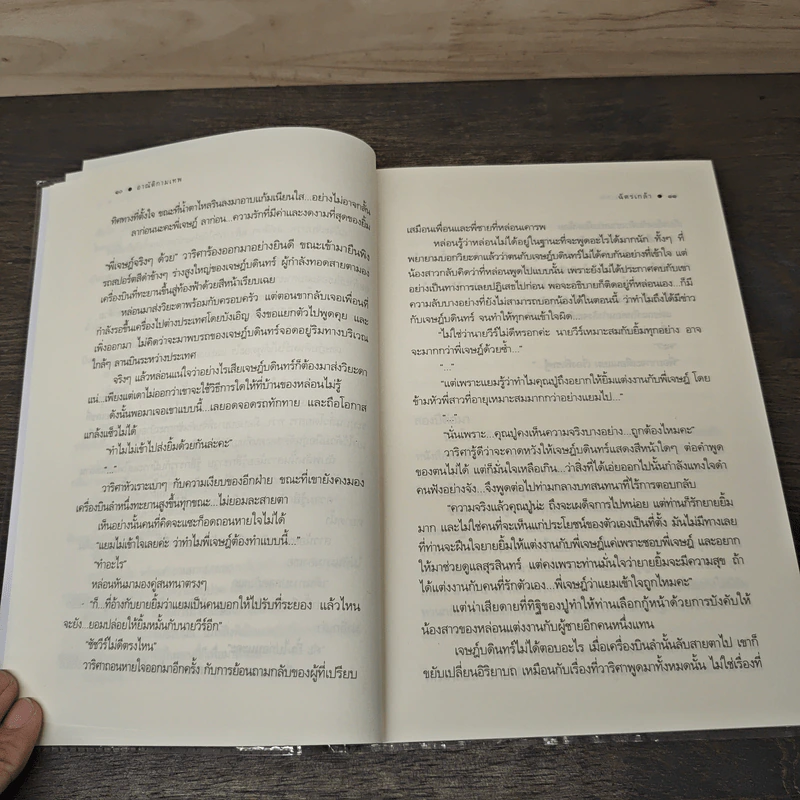 ๒๐ ● อาณัติกามเทพ
ทิศทางที่ตั้งใจ ขณะที่น้ำตาไหลรินลงมาอาบแก้มเนียนใส...อย่างไม่อาจกลั้น
ลาก่อนนะคะพี่เจษฎ์ ลาก่อน...ความรักที่มีค่าและงดงามที่สุดของยิ้ม
“พี่เจษฎ์จริงๆ ด้วย” วาริศาร้องออกมาอย่างยินดี ขณะเข้ามายืนพิง
รถสปอร์ตสีดำข้างๆ ร่างสูงใหญ่ของเจษฎ์บดินทร์ ผู้กำลังทอดสายตามอง
เครื่องบินที่ทะยานขึ้นสู่ท้องฟ้าด้วยสีหน้าเรียบเฉย
หล่อนมาส่งวิยะดาพร้อมกับครอบครัว แต่ตอนขากลับเจอเพื่อนที่
กำลังรอขึ้นเครื่องไปต่างประเทศโดยบังเอิญ จึงขอแยกตัวไปพูดคุย และ
เพิ่งออกมา ไม่คิดว่าจะมาพบรถของเจษฎ์บดินทร์จอดอยู่ริมทางบริเวณ
ใกล้ๆ ลานบินระหว่างประเทศ
จริงๆ แล้วหล่อนแน่ใจว่าอย่างไรเสียเจษฎ์บดินทร์ก็ต้องมาส่งวิยะดา
แน่...เพียงแต่เดาไม่ออกว่าเขาจะใช้วิธีการใดให้ที่บ้านของหล่อนไม่รู้
ดังนั้นพอมาเจอเขาแบบนี้...เลยอดจอดรถทักทาย และถือโอกาส
แกล้งแซ็วไม่ได้
“ทำไมไม่เข้าไปส่งยิ้มด้วยกันล่ะคะ”
“...”
วาริศาหัวเราะเบาๆ กับความเงียบของอีกฝ่าย ขณะที่เขายังคงมอง
เครื่องบินลำหนึ่งทะยานสูงขึ้นทุกขณะ...ไม่ยอมละสายตา
เห็นอย่างนั้นคนที่คิดจะแซะก็อดถอนหายใจไม่ได้
“แยมไม่เข้าใจเลยค่ะ ว่าทำไมพี่เจษฎ์ต้องทำแบบนี้...”
“ทำอะไร”
หล่อนหันมามองคู่สนทนาตรงๆ
“ก็...ที่อ้างกับยายยิ้มว่าแยมเป็นคนบอกให้ไปรับที่ระยอง แล้วไหน
จะยัง...ยอมปล่อยให้ยิ้มหมั้นกับนายวีร์อีก”
“ชัชวีร์ไม่ดีตรงไหน”
วาริศาถอนหายใจออกมาอีกครั้ง กับการย้อนถามกลับของผู้ที่เปรียบ
ฉัตรเกล้า ● ๒๑
เสมือนเพื่อนและพี่ชายที่หล่อนเคารพ
หล่อนรู้ว่าหล่อนไม่ได้อยู่ในฐานะที่จะพูดอะไรได้มากนัก ทั้งๆ ที่
พยายามบอกวิยะดาแล้วว่าตนกับเจษฎ์บดินทร์ไม่ได้คบกันอย่างที่เข้าใจ แต่
น้องสาวกลับคิดว่าที่หล่อนพูดไปแบบนั้น เพราะยังไม่ได้ประกาศคบกับเขา
อย่างเป็นทางการเลยปฏิเสธไปก่อน พอจะอธิบายก็ติดอยู่ที่หล่อนเอง...ก็มี
ความลับบางอย่างที่ยังไม่สามารถบอกน้องได้ในตอนนี้ ว่าทำไมถึงได้มีข่าว
กับเจษฎ์บดินทร์ จนทำให้ทุกคนเข้าใจผิด...
“ไม่ใช่ว่านายวีร์ไม่ดีหรอกค่ะ นายวีร์เหมาะสมกับยิ้มทุกอย่าง อาจ
จะมากกว่าพี่เจษฎ์ด้วยซ้ำ...”
“...”
“แต่เพราะแยมรู้ว่าทำไมคุณปู่ถึงอยากให้ยิ้มแต่งงานกับพี่เจษฎ์ โดย
ข้ามหัวพี่สาวที่อายุเหมาะสมมากกว่าอย่างแยมไป...”
“...”
“นั่นเพราะ...คุณปู่คงเห็นความจริงบางอย่าง...ถูกต้องไหมคะ”
วาริศารู้ดีว่าจะคาดหวังให้เจษฎ์บดินทร์แสดงสีหน้าใดๆ ต่อคำพูด
ของตนไม่ได้ แต่ก็มั่นใจเหลือเกิน...ว่าสิ่งที่ได้เอ่ยออกไปนั้นกำลังแทงใจดำ
คนฟังอย่างจัง...จึงพูดต่อไปท่ามกลางบทสนทนาที่ไร้การตอบกลับ
“ความจริงแล้วคุณปู่น่ะ ถึงจะเผด็จการไปหน่อย แต่ท่านก็รักยายยิ้ม
มาก และไม่ใช่คนที่จะเห็นแก่ประโยชน์ของตัวเองเป็นที่ตั้ง มันไม่มีทางเลย
ที่ท่านจะฝืนใจยายยิ้มให้แต่งงานกับพี่เจษฎ์แค่เพราะชอบพี่เจษฎ์ และอยาก
ให้มาช่วยดูแลสุรสินทร์ แต่คงเพราะท่านมั่นใจว่ายายยิ้มจะมีความสุข ถ้า
ได้แต่งงานกับคนที่รักตัวเอง...พี่เจษฎ์ว่าแยมเข้าใจถูกไหมคะ”
แต่น่าเสียดายที่ทิฐิของปู่ทำให้ท่านเลือกกู้หน้าด้วยการบังคับให้
น้องสาวของหล่อนแต่งงานกับผู้ชายอีกคนหนึ่งแทน
เจษฎ์บดินทร์ไม่ได้ตอบอะไร เมื่อเครื่องบินลำนั้นลับสายตาไป เขาก็
ขยับเปลี่ยนอิริยาบถ เหมือนกับเรื่องที่วาริศาพูดมาทั้งหมดนั้น ไม่ใช่เรื่องที่